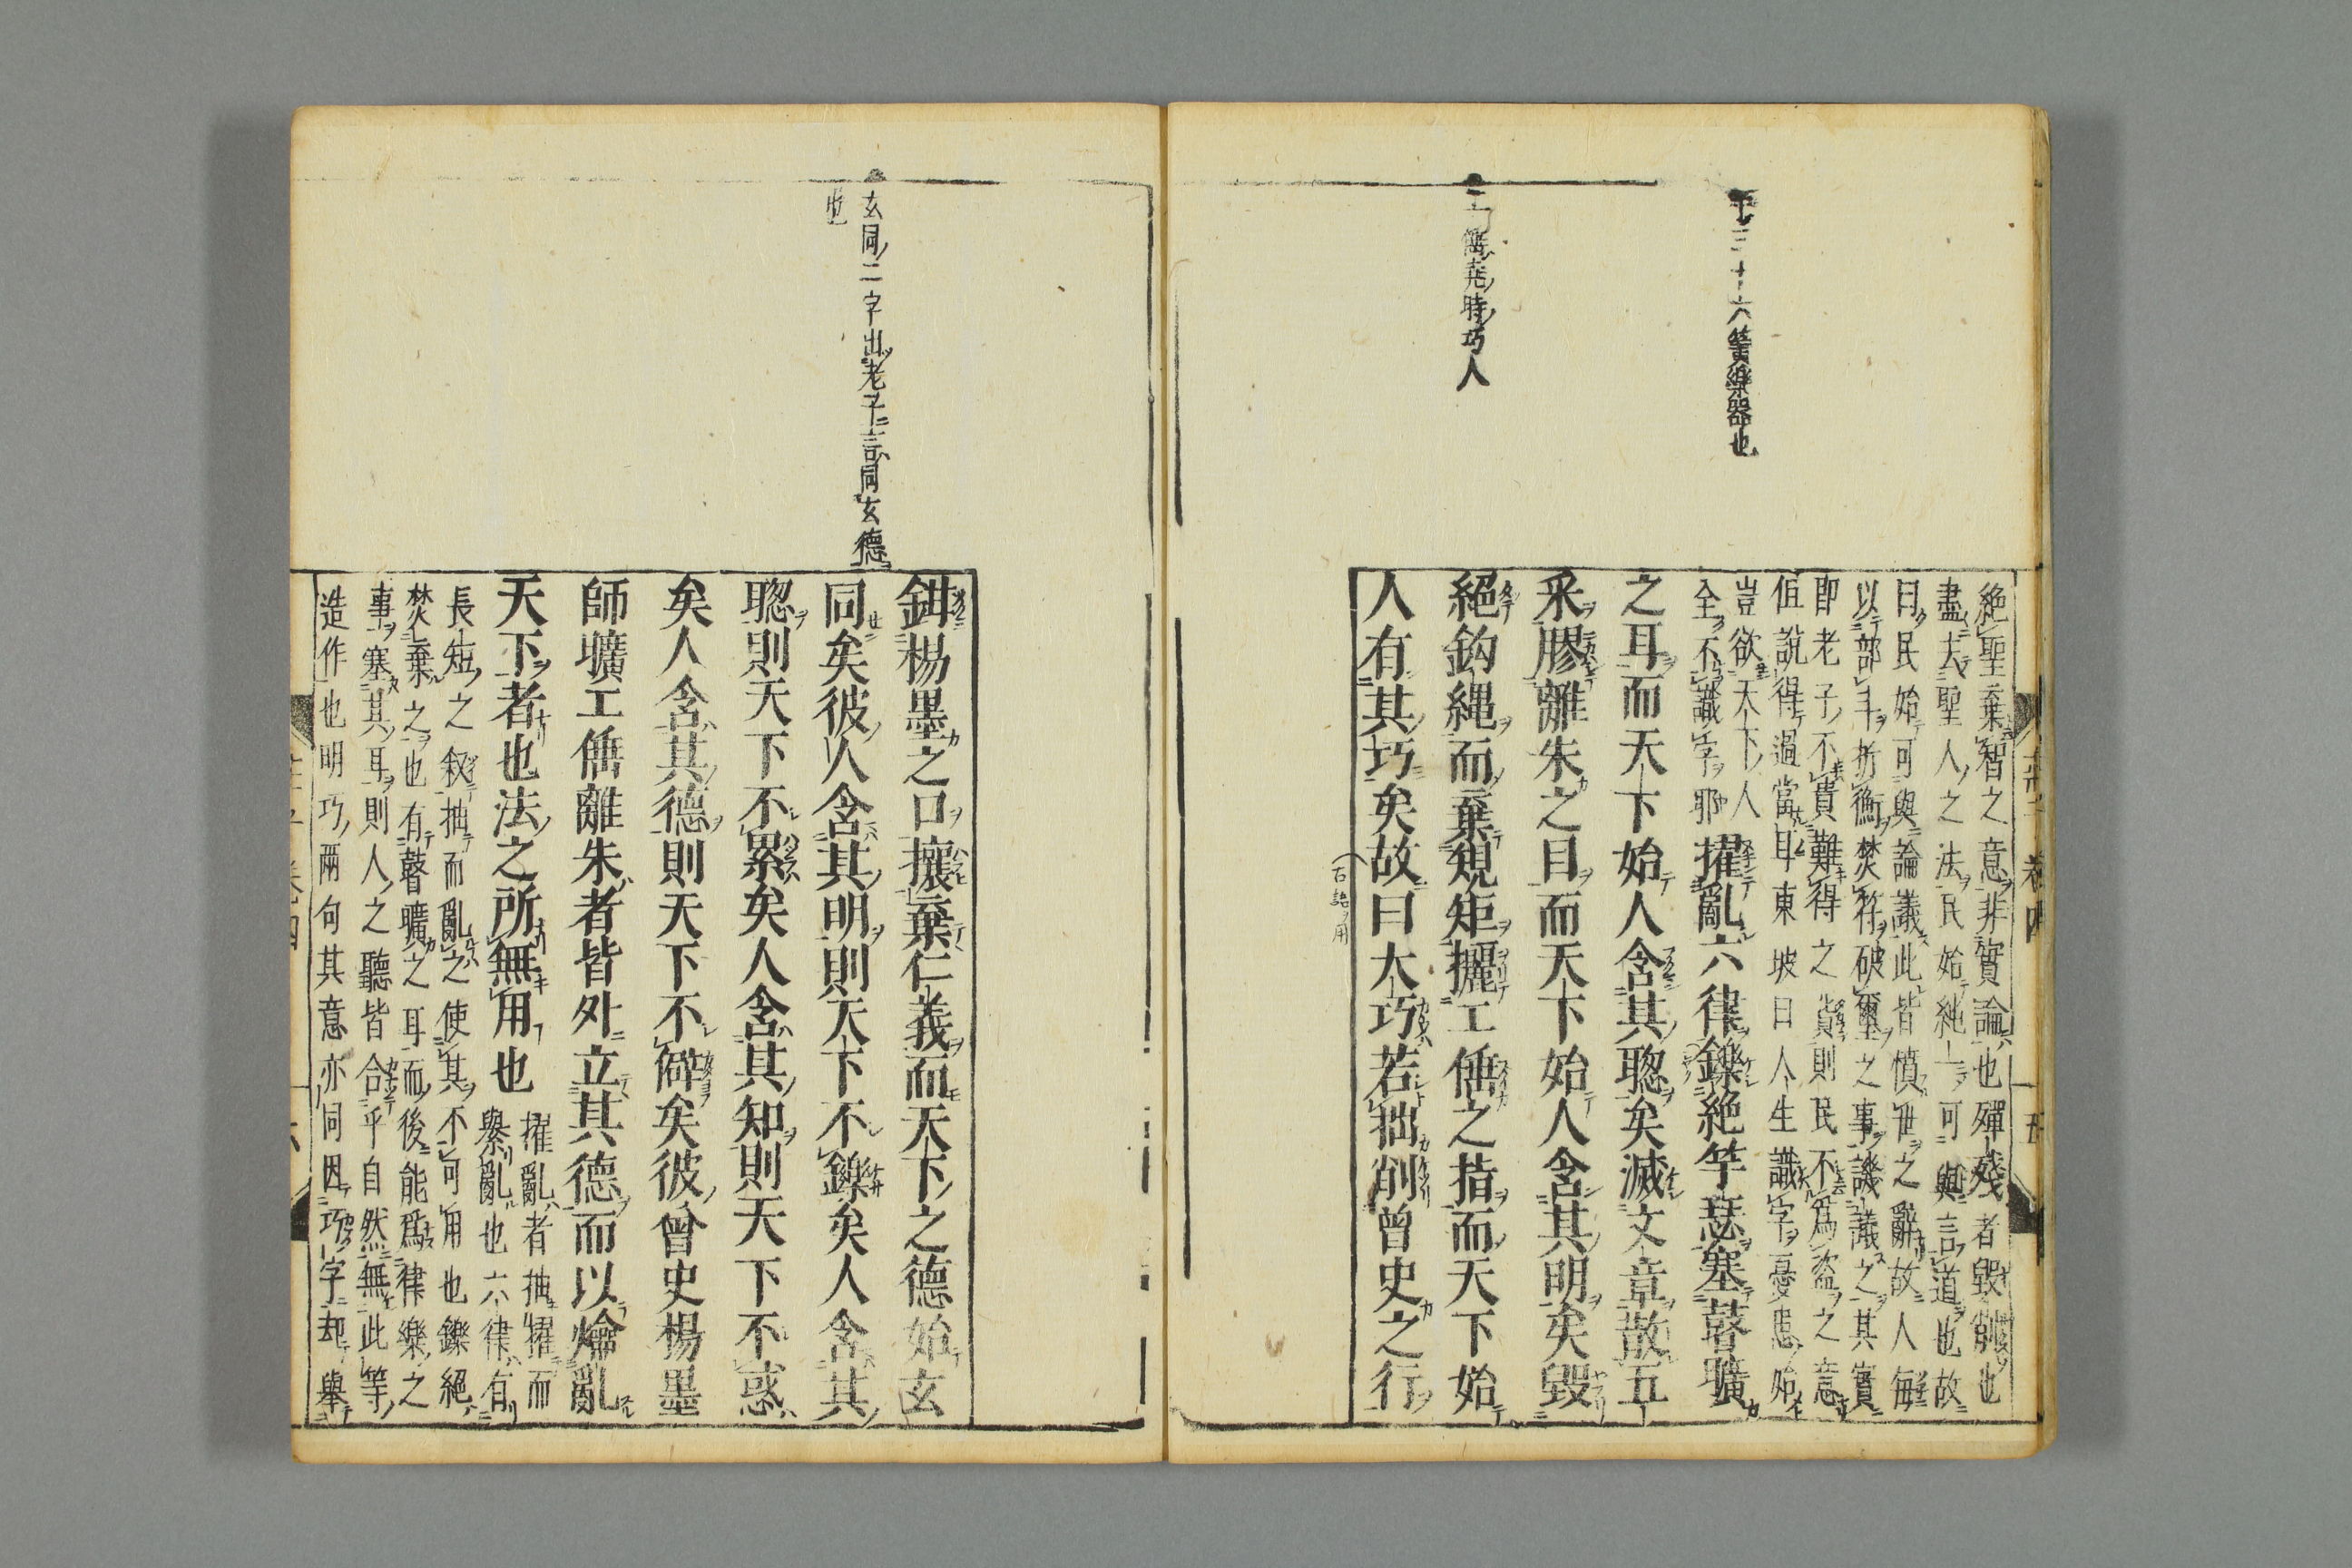 竽三十六簧樂器也
工倕堯時巧人
絶聖棄智之意非實論也殫殘者毀削也
盡去聖人之法民始純一可與言道也故
曰民始可與論議此皆憤世之辭故人毎
以部斗折衡焚符破璽之事譏議之其實
即老子不貴難得之貨則民不爲盗之意
但說得過當耳東坡曰人生識字憂患始
豈欲天下人
全不識字耶
擢亂六律鑠絶竽瑟塞瞽曠
之耳而天下始人含其聦矣滅文章散五
采膠離朱之目而天下始人含其明矣毀
絶鈎縄而棄規矩攦工倕之指而天下始
人有其巧矣故曰大巧若拙削曾史之行
莊子 卷四 十五
玄同二字出老子言同玄德
也
鉗楊墨之口攘棄仁義而天下之德始玄
同矣彼人含其明則天下不鑠矣人含其
聦則天下不累矣人含其知則天下不惑
矣人含其德則天下不僻矣彼曾史楊墨
師曠工倕離朱者皆外立其德而以爚亂
天下者也法之所無用也
擢亂者抽擢而
擧亂也六律有
長短之叙抽而亂之使其不可用也鑠絶
焚棄之也有瞽曠之耳而後能爲律樂之
事塞其耳則人之聽皆合乎自然無此等
造作也明巧兩句其意亦同因巧字却擧